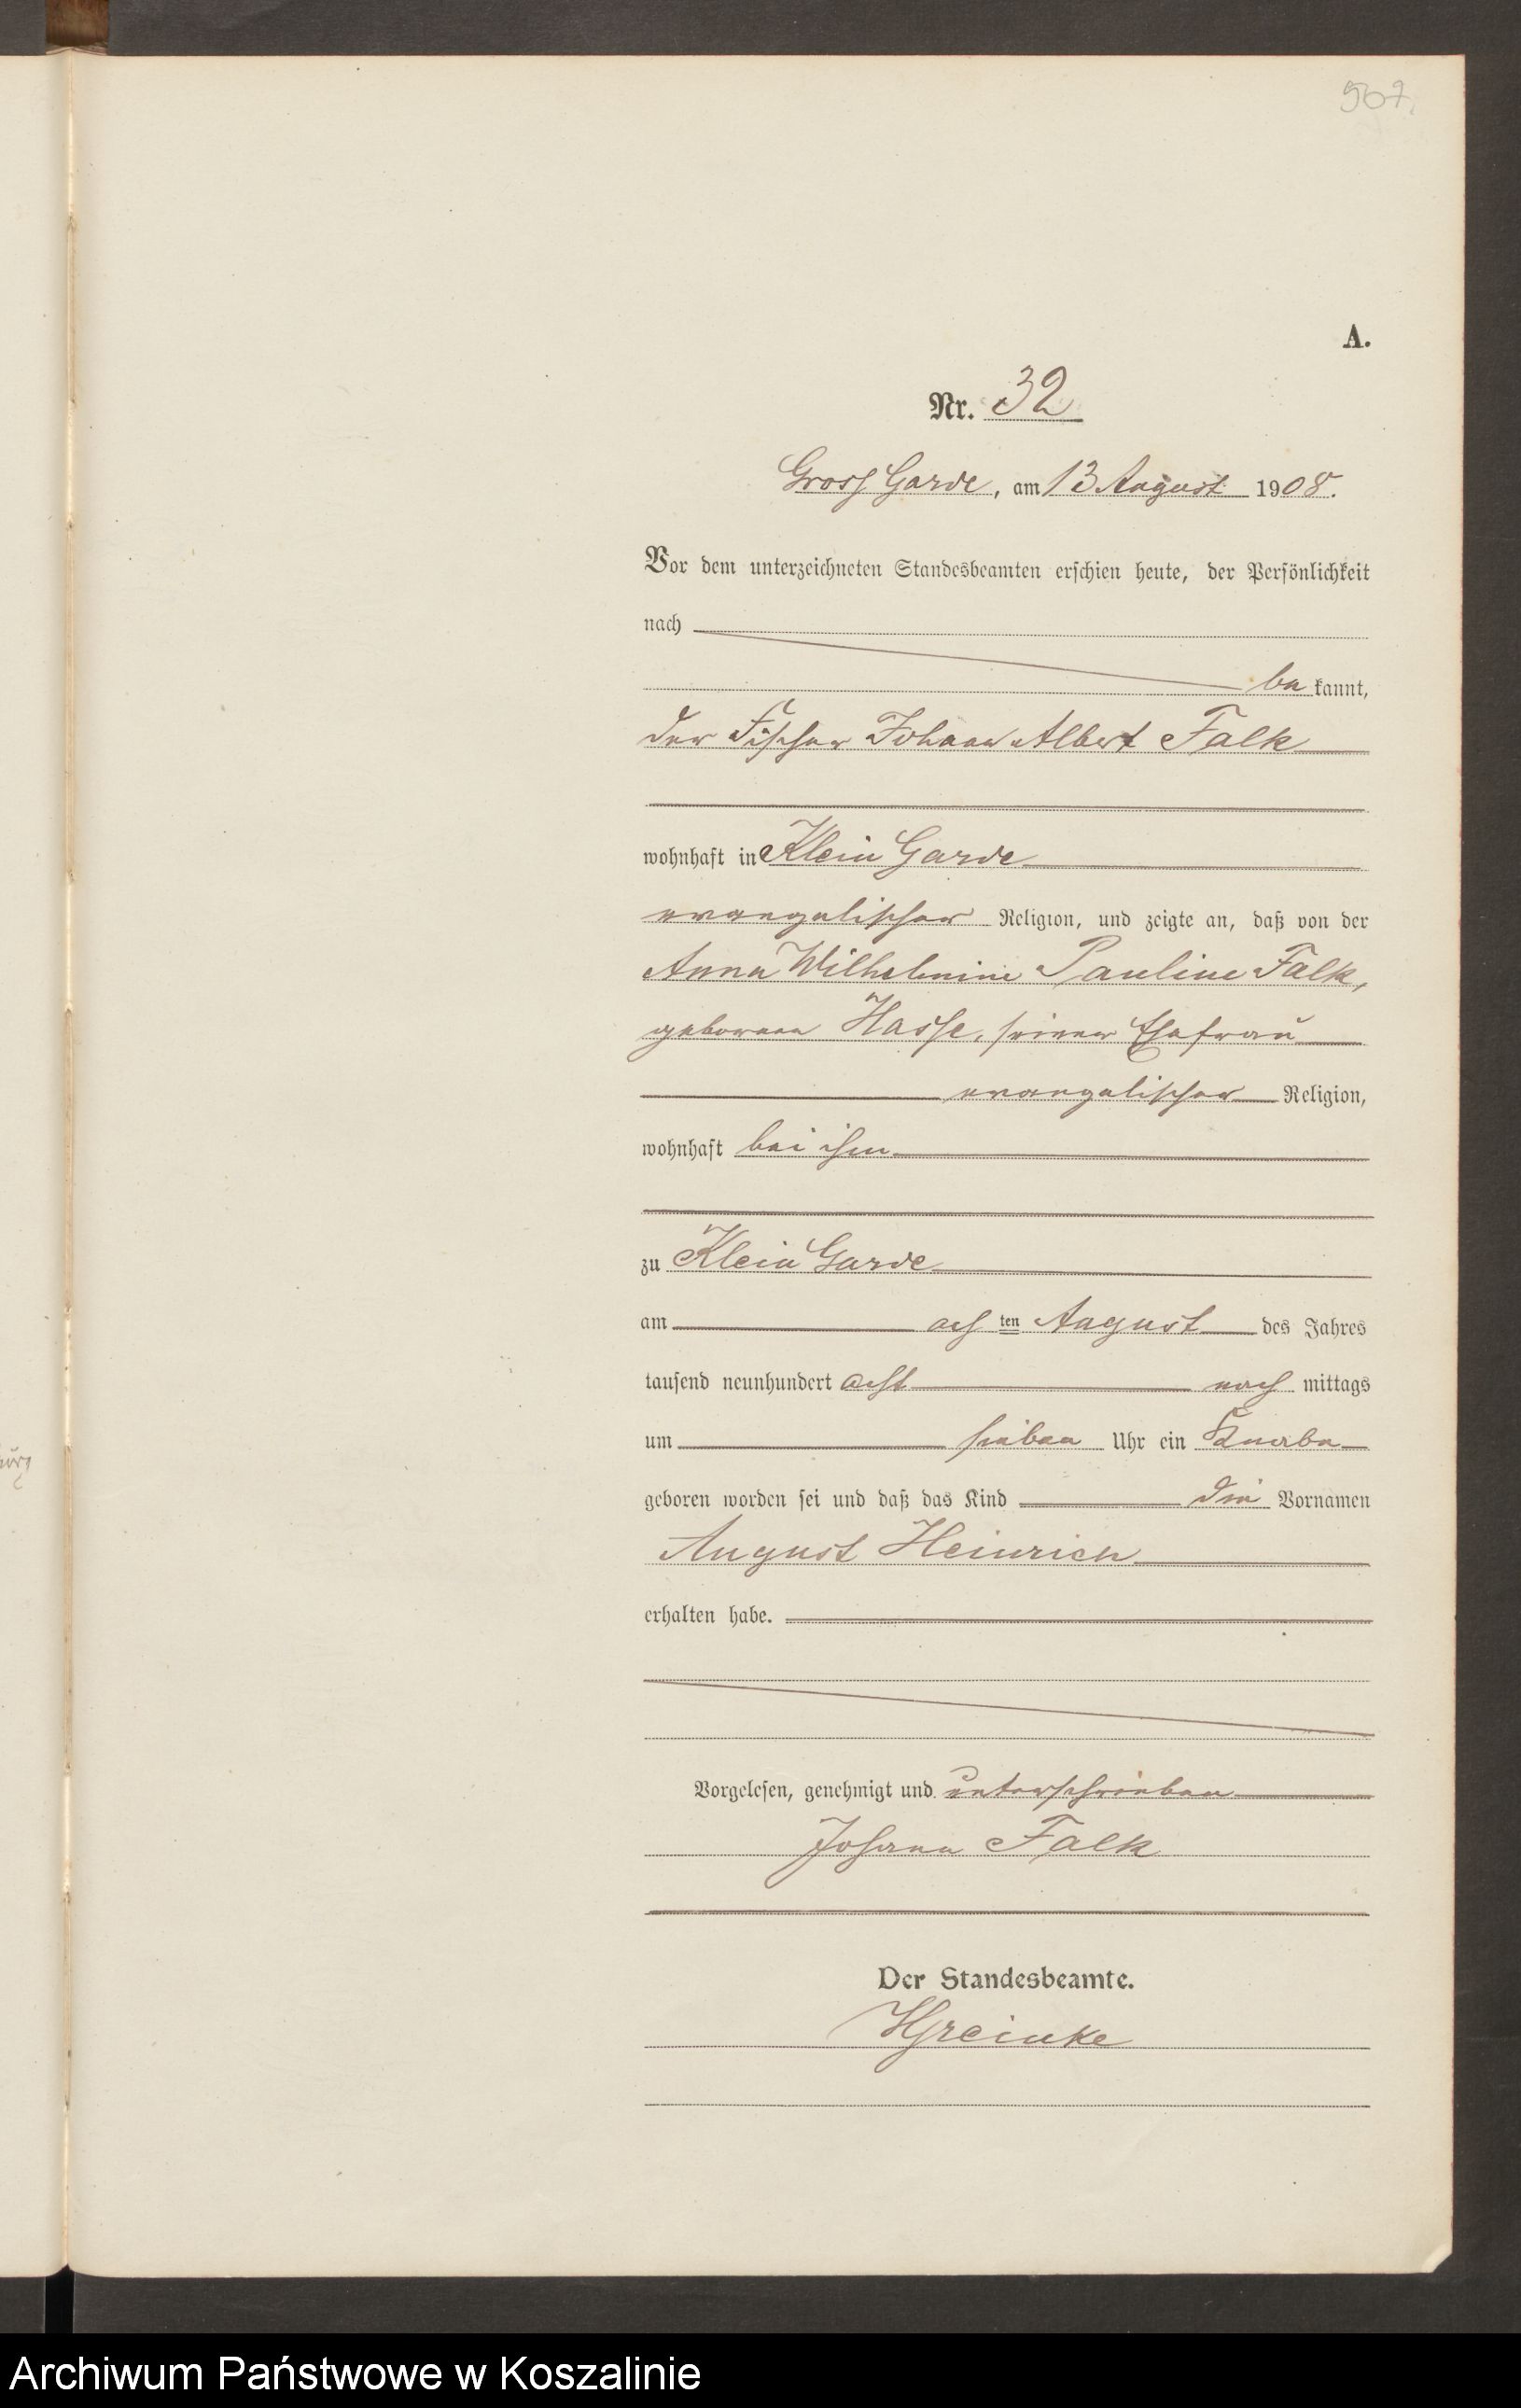 507.
A.
Nr. 32
Gross Garde, am 13 August 1908.
Vor dem unterzeichneten Standesbeamten erschien heute, der Persönlichkeit
nach
be kannt,
der Fischer Johann Albert Falk
wohnhaft in Klein Garde
evangelischer Religion, und zeigte an, daß von der
Anna Wilhelmine Pauline Falk,
geborenen Hasse, seiner Ehefrau
evangelischer Religion,
wohnhaft bei ihm
zu Klein Garde
am ach ten August des Jahres
tausend neunhundert acht nach mittags
um sieben Uhr ein Knabe
geboren worden sei und daß das Kind die Vornamen
August Heinrich
erhalten habe.
Vorgelesen, genehmigt und unterschrieben
Johann Falk
Der Standesbeamte.
Archiwum Państwowe w Koszalinie